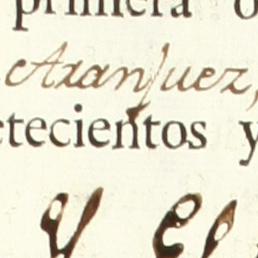 primera
Aranjuez,
etecientos y
Y El